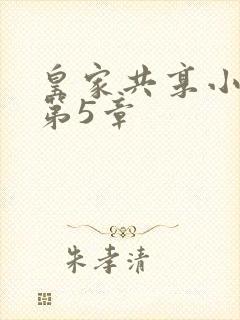 皇家共享小
第5章
朱孝清